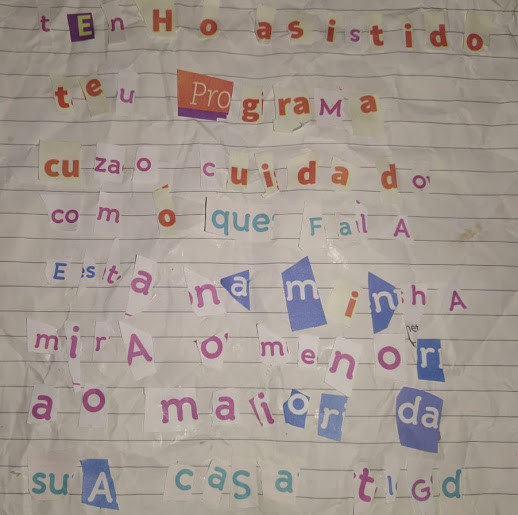 tEn Ho asistido
teu ProgiraMa
cuzao cuidado
com o que FalA
Esta na minhA
mirA o menor
ao maiior da
suA casa tIGd